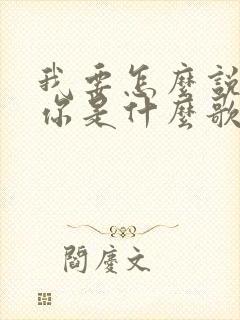 我要怎麼說
你是什麼歌
閻慶文